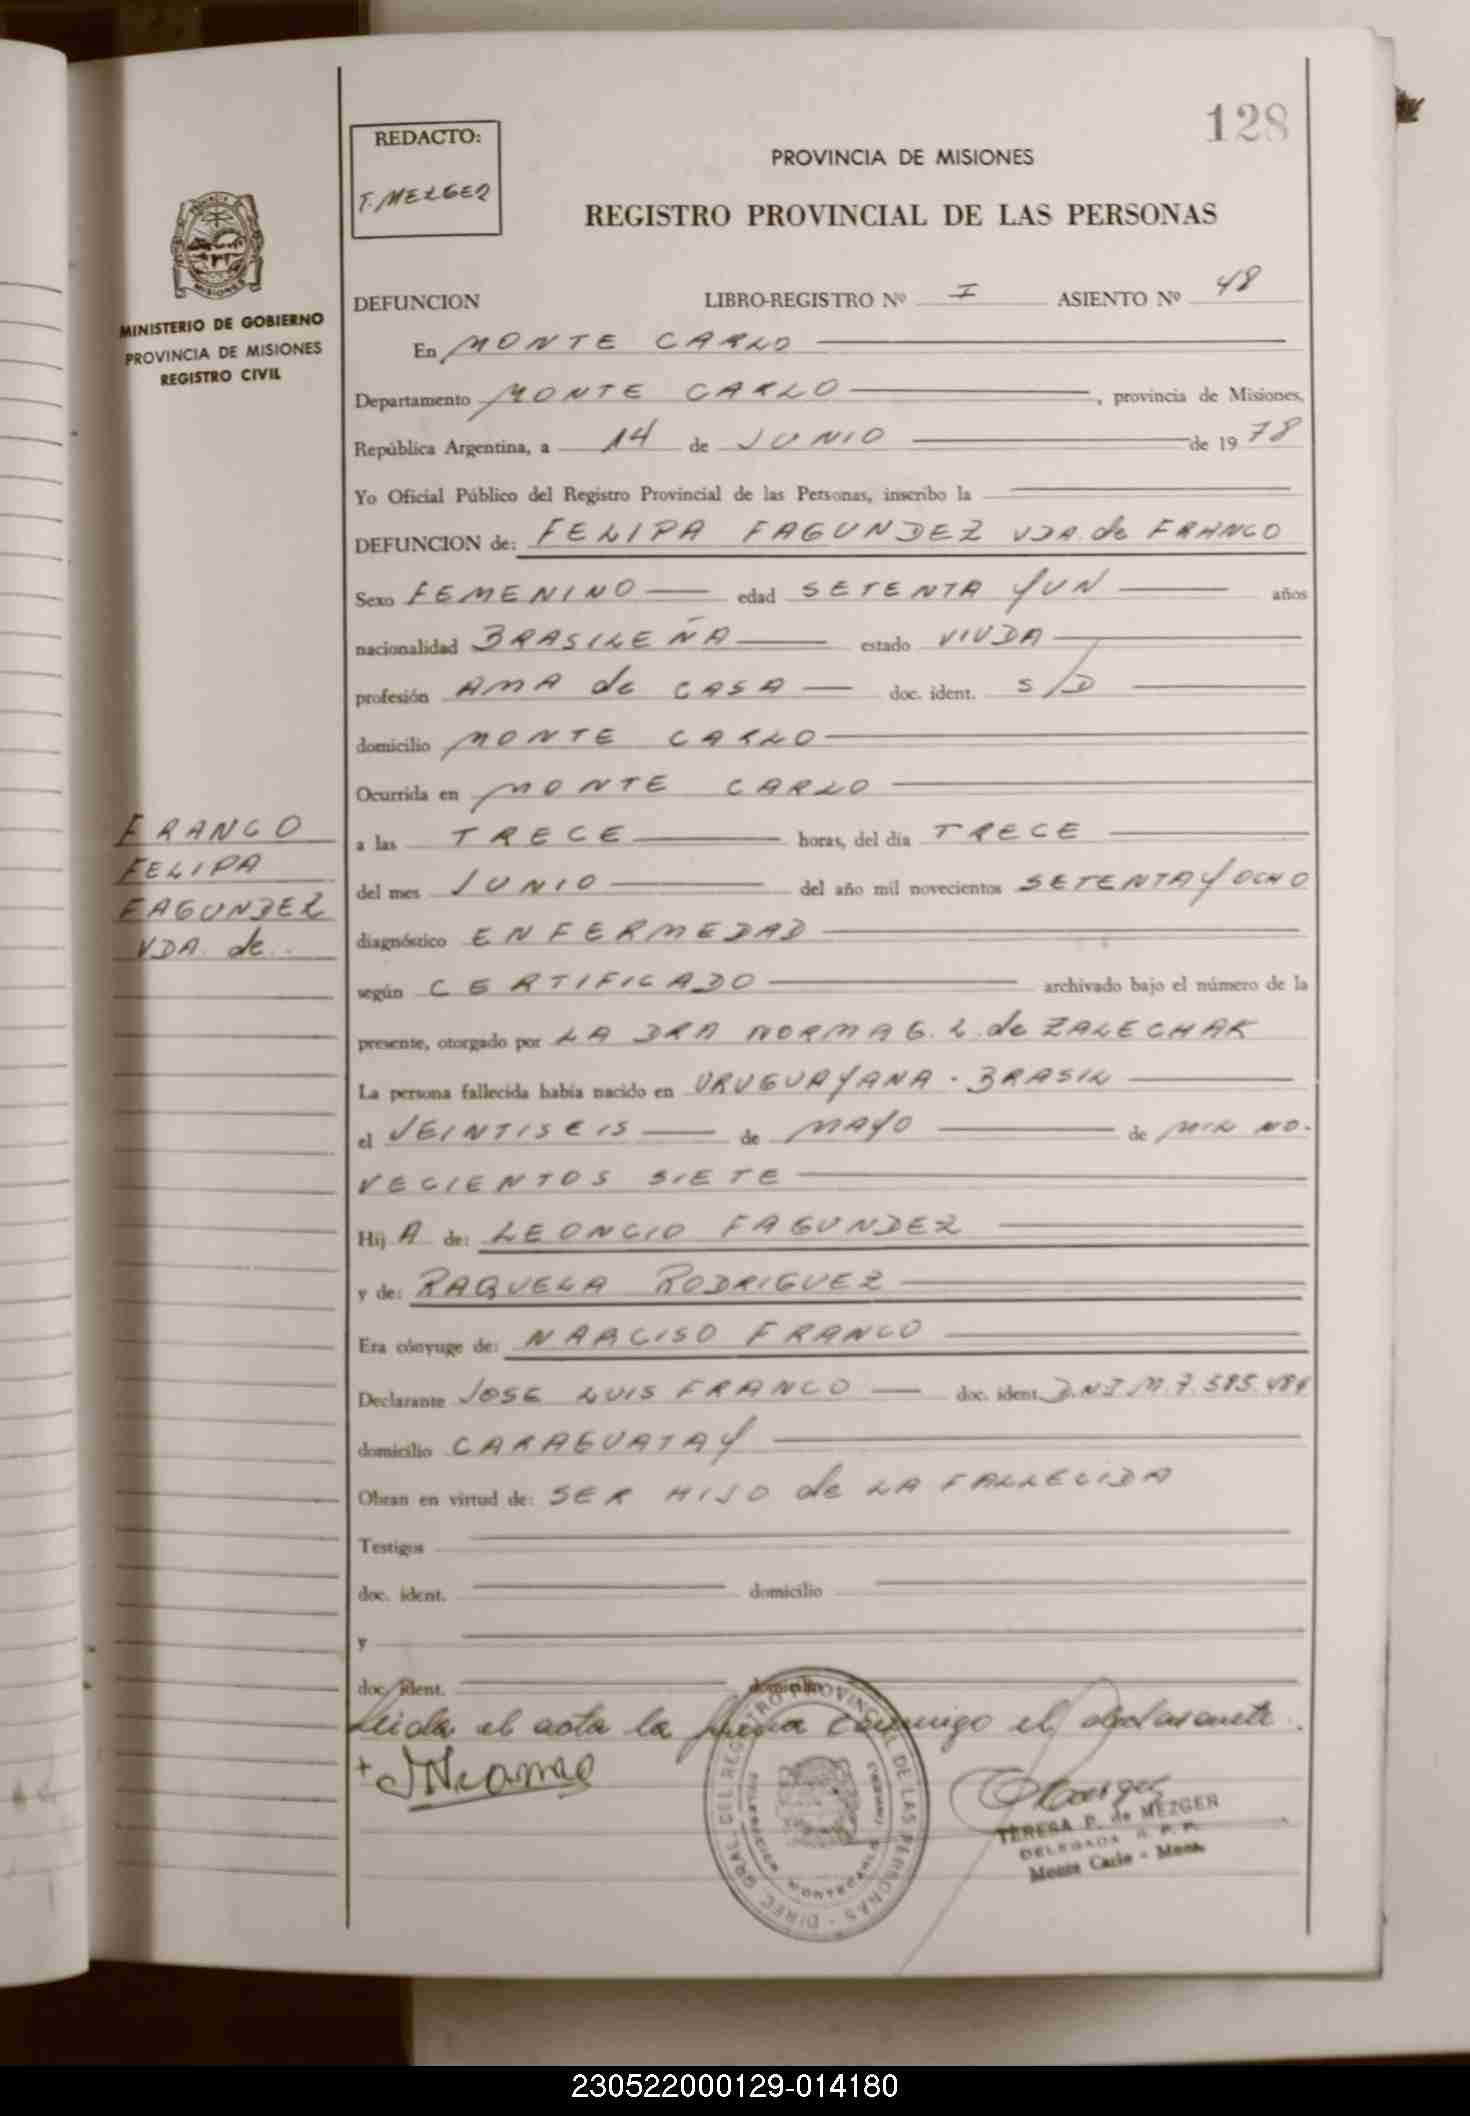 128
REDACTO:
T. MEZGER
PROVINCIA DE MISIONES
REGISTRO PROVINCIAL DE LAS PERSONAS
MISIONES
MINISTERIO DE GOBIERNO
PROVINCIA DE MISIONES
REGISTRO CIVIL
DEFUNCION LIBRO-REGISTRO Nº I ASIENTO Nº 48
En MONTE CARLO
Departamento MONTE CARLO, provincia de Misiones,
República Argentina, a 14 de JUNIO de 1978
Yo Oficial Público del Registro Provincial de las Personas, inscribo la
DEFUNCION de: FELIPA FAGUNDEZ VDA. de FRANCO
Sexo FEMENINO edad SETENTA Y UN años
nacionalidad BRASILEÑA estado VIUDA
profesión AMA de CASA doc. ident. S/D
domicilio MONTE CARLO
Ocurrida en MONTE CARLO
a las TRECE horas, del día TRECE
del mes JUNIO del año mil novecientos SETENTA Y OCHO
diagnóstico ENFERMEDAD
según CERTIFICADO archivado bajo el número de la
presente, otorgado por LA DRA NORMA G. L. de ZALECHAK
La persona fallecida había nacido en URUGUAYANA - BRASIL
el VEINTISEIS de MAYO de MIL NO-
VECIENTOS SIETE
Hij A de: LEONCIO FAGUNDEZ
y de: RAQUELA RODRIGUEZ
Era cónyuge de: NARCISO FRANCO
Declarante JOSE LUIS FRANCO doc. ident. D.N.I. M. 7.585.484
domicilio CARAGUATAY
Obran en virtud de: SER HIJO de LA FALLECIDA
Testigos
doc. ident. domicilio
y
doc. ident. domicilio
Leida el acta la firma conmigo el declarante.
FRANCO
FELIPA
FAGUNDEZ
VDA. de
DIREC. GRAL. DEL REGISTRO PROVINCIAL DE LAS PERSONAS
MONTECARLO
TERESA P. de MEZGER
DELEGADA R. P. P.
Monte Carlo - Mnes.
230522000129-014180